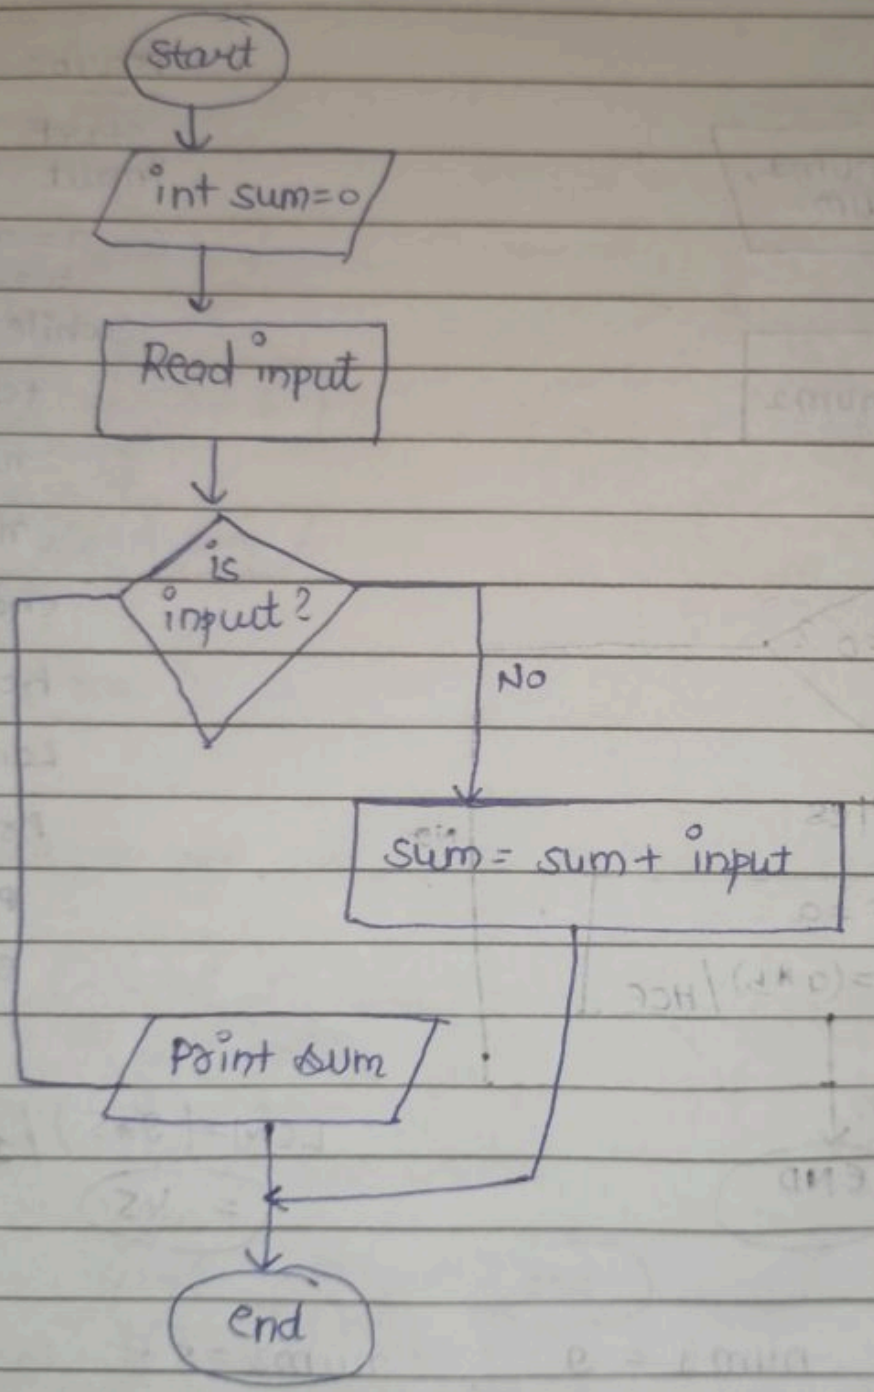 Start
int sum=0
Read input
is
input?
No
sum= sum+ input
Print sum
end